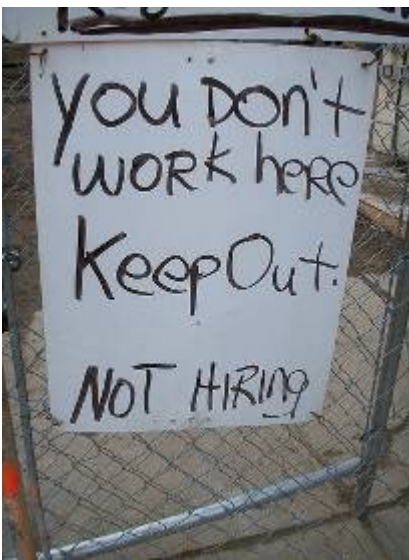 you Don't
work here
Keep Out.
NOT HIRING